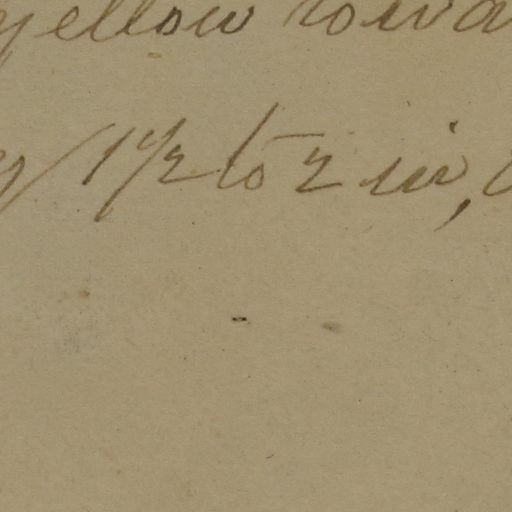 yellow towa
y 1 1/2 to 2 in,